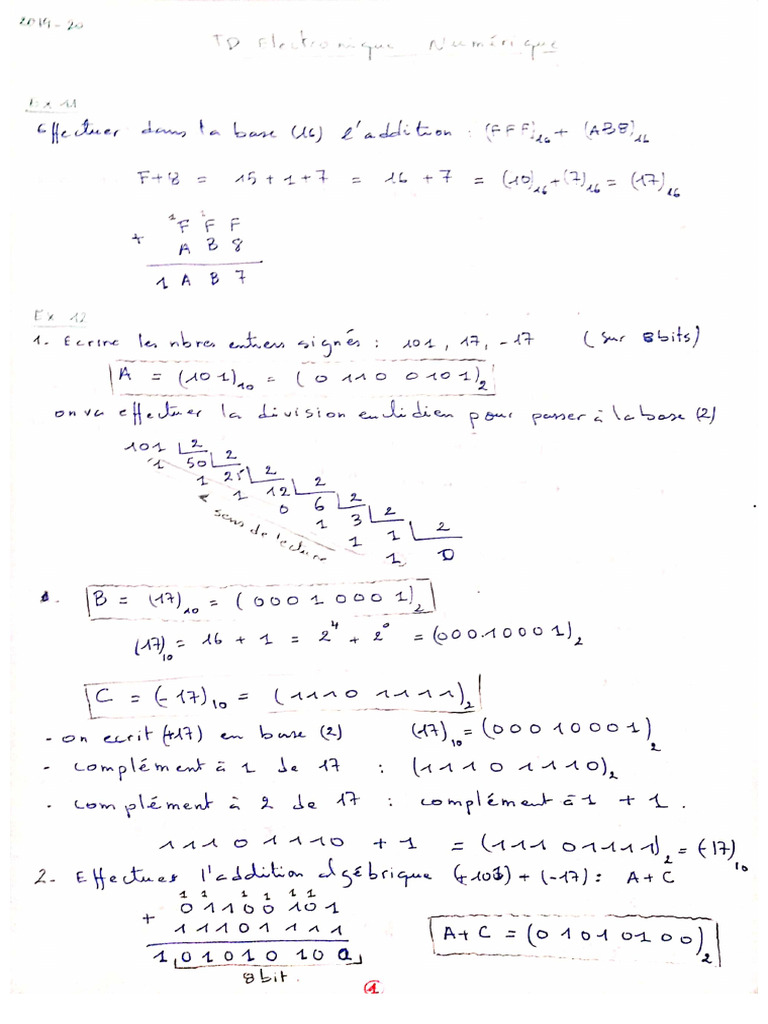 2019-20
TD Electronique Numérique
Ex 11
Effectuer dans la base (16) l'addition : (FFF)₁₆ + (AB8)₁₆
F+8 = 15+1+7 = 16+7 = (10)₁₆+(7)₁₆ = (17)₁₆
1 1
F F F
+ A B 8
1 A B 7
Ex 12
1- Ecrire les nbres entiers signés : 101, 17, -17 (sur 8bits)
A = (101)₁₀ = (0110 0101)₂
on va effectuer la division euclidien pour passer à la base (2)
101 2
1 50 2
1 25 2
1 12 2
0 6 2
1 3 2
1 1 2
1 0
sens de lecture
B = (17)₁₀ = (0001 0001)₂
(17)₁₀ = 16 + 1 = 2⁴ + 2⁰ = (00010001)₂
C = (-17)₁₀ = (1110 1111)₂
- on ecrit (+17) en base (2) (17)₁₀ = (00010001)₂
- complément à 1 de 17 : (11101110)₂
- complément à 2 de 17 : complément à 1 + 1.
11101110 + 1 = (11101111)₂ = (-17)₁₀
2- Effectuer l'addition algébrique (+101) + (-17) : A+C
1 1 1 1 1
01100101
+ 11101111
1 01010100
8bit.
A+C = (01010100)₂
1